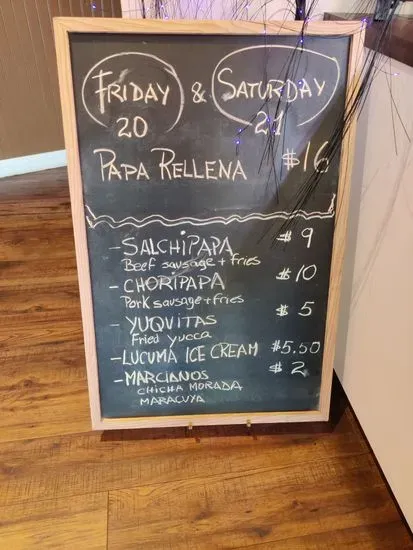 FRIDAY & SATURDAY
20 21
PAPA RELLENA $16
- SALCHIPAPA $ 9
Beef sausage + fries
- CHORIPAPA $ 10
Pork sausage + fries
- YUQUITAS $ 5
Fried yucca
- LUCUMA ICE CREAM $5.50
- MARCIANOS $ 2
CHICHA MORADA
MARACUYA